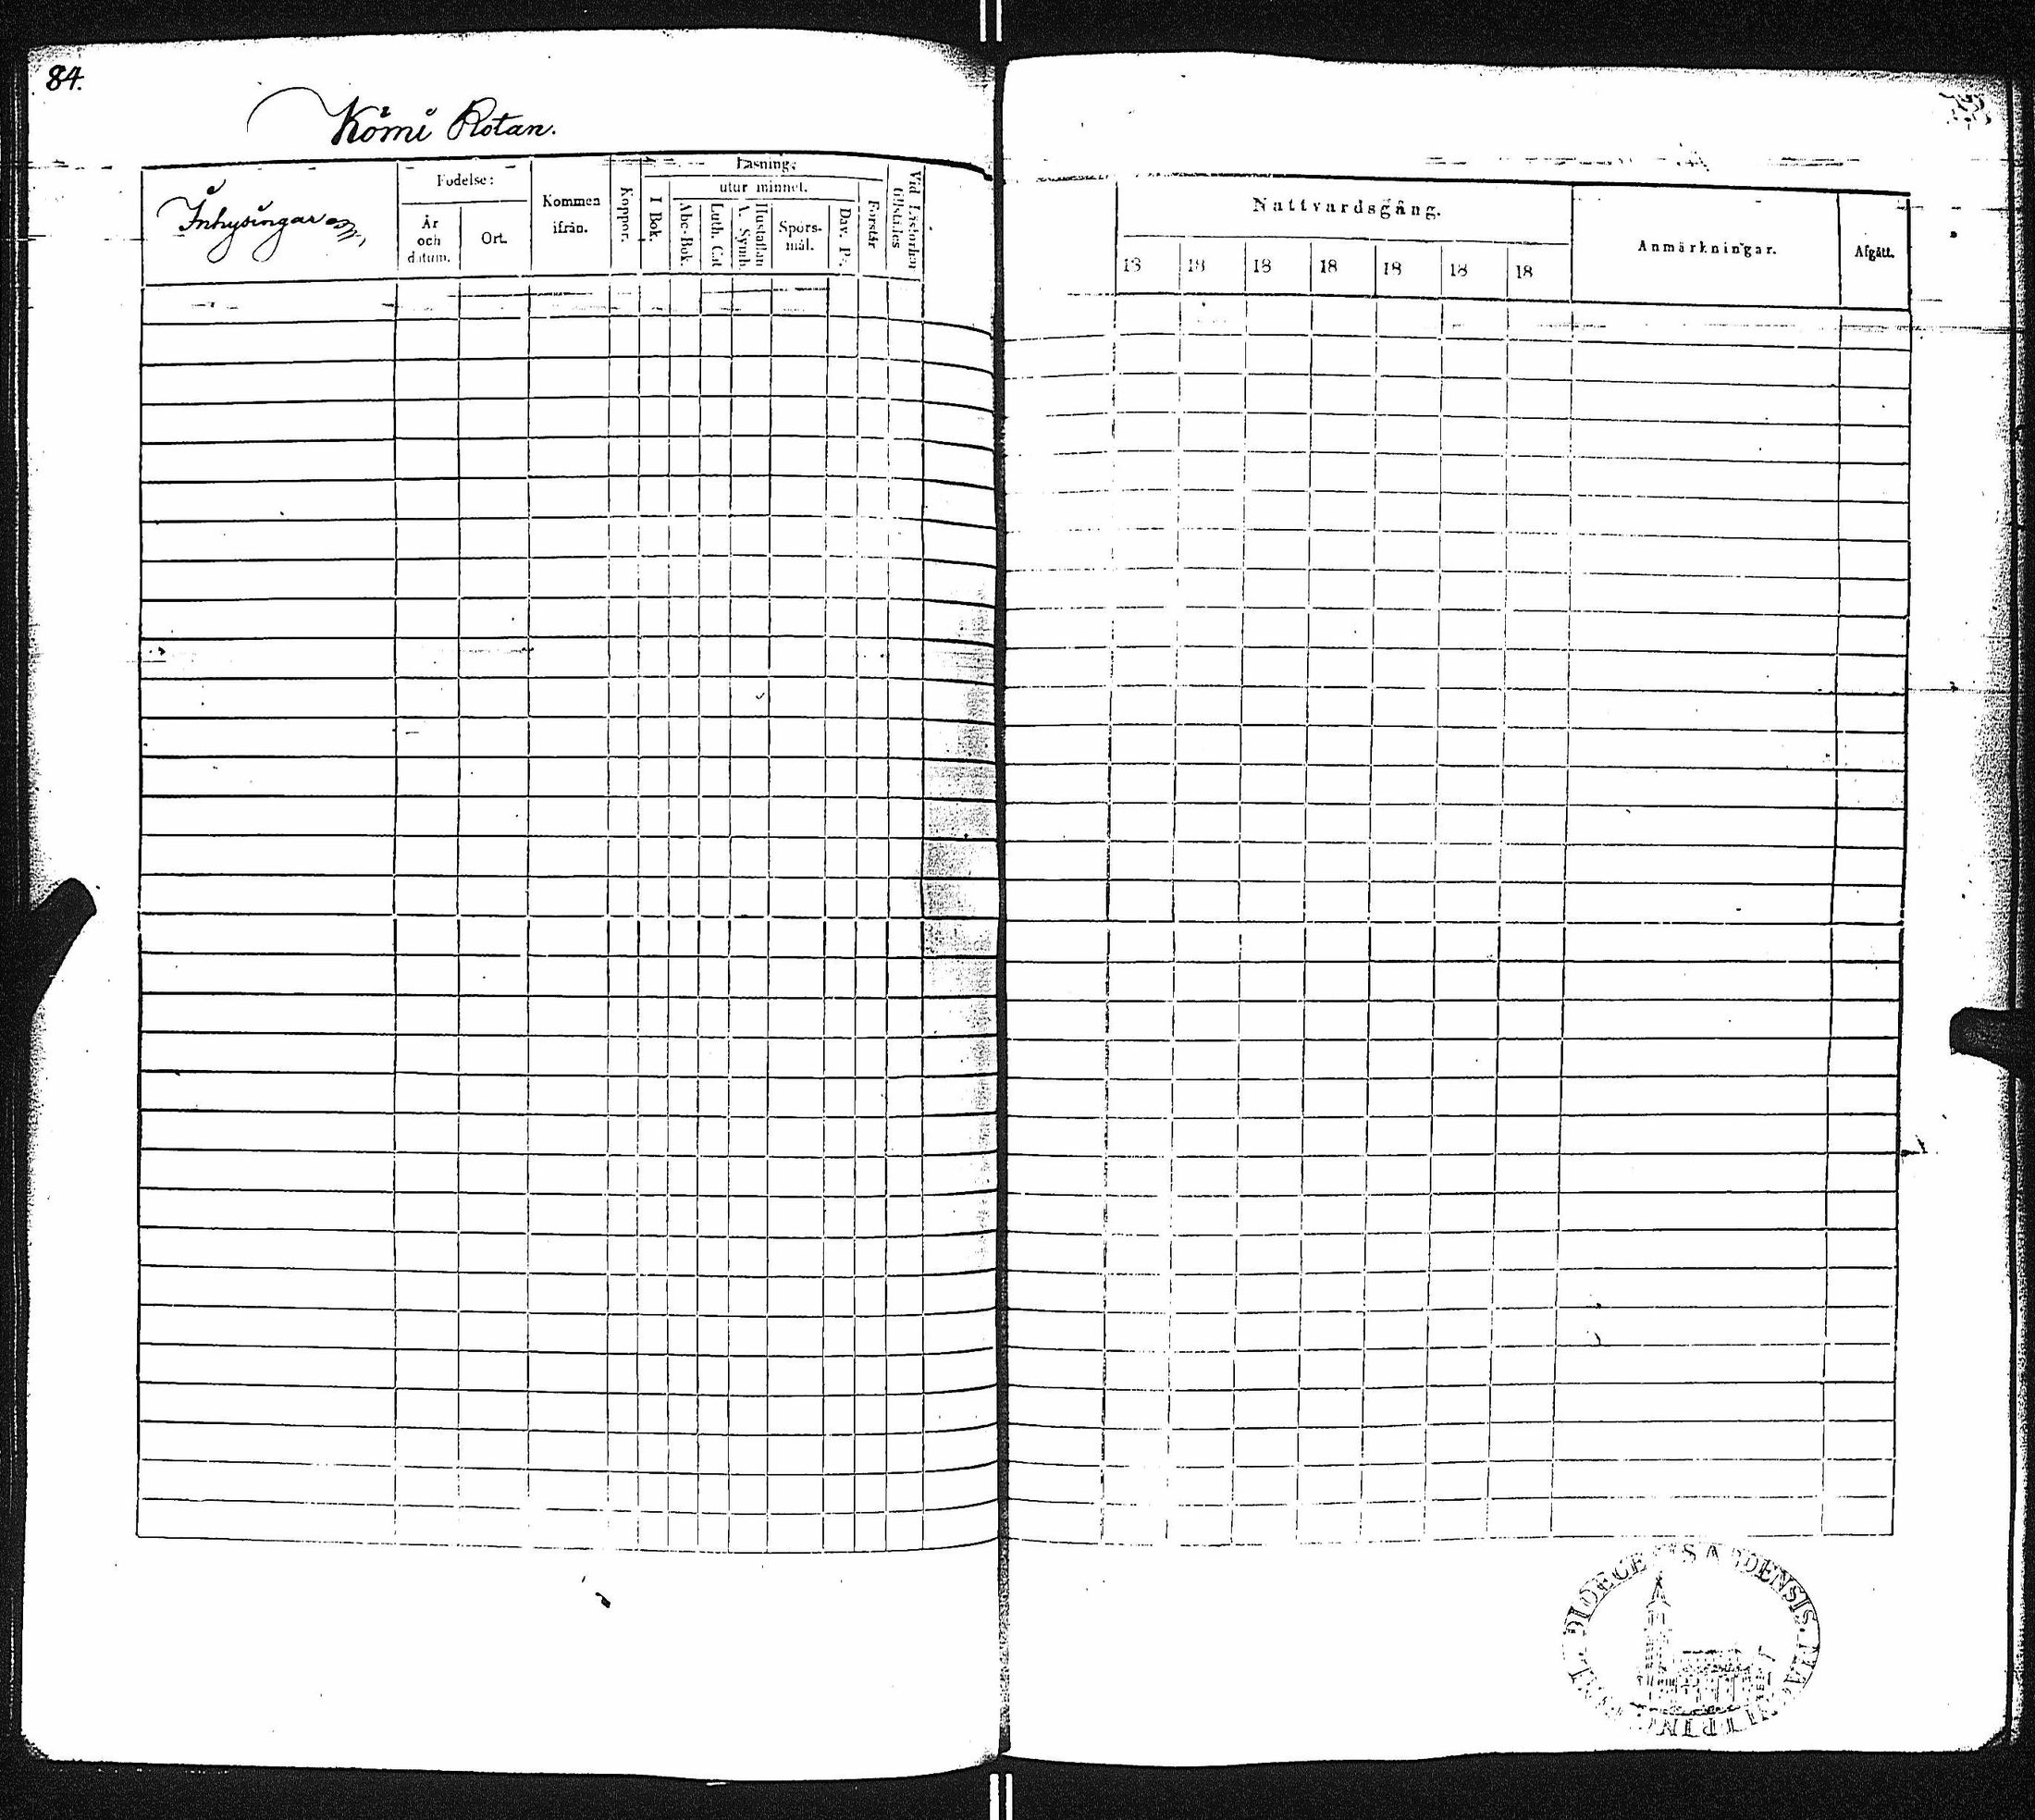 84.
Kömi Rotan.
Inhysingar
Fodelse:
År och datum.
Ort.
Kommen ifrån.
Koppor.
Läsning.
utur minnet.
I Bok.
Abc-Bok.
Luth. Cat
Hustaflan A. Symb.
Spörs-mål.
Dav. Ps.
Förstår
Vid Läsförhör tillstädes
Nattvardsgång.
18 18 18 18 18 18 18
Anmärkningar.
Afgått.